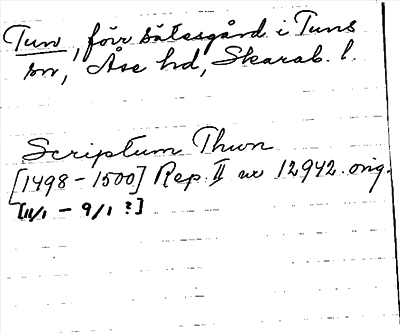 Tun, förr sätesgård i Tuns
sn, Åse hd, Skarab. l.
Scriptum Thwn
[1498-1500] Rep. II nr 12942. orig.
[11/1 - 9/1 ?]